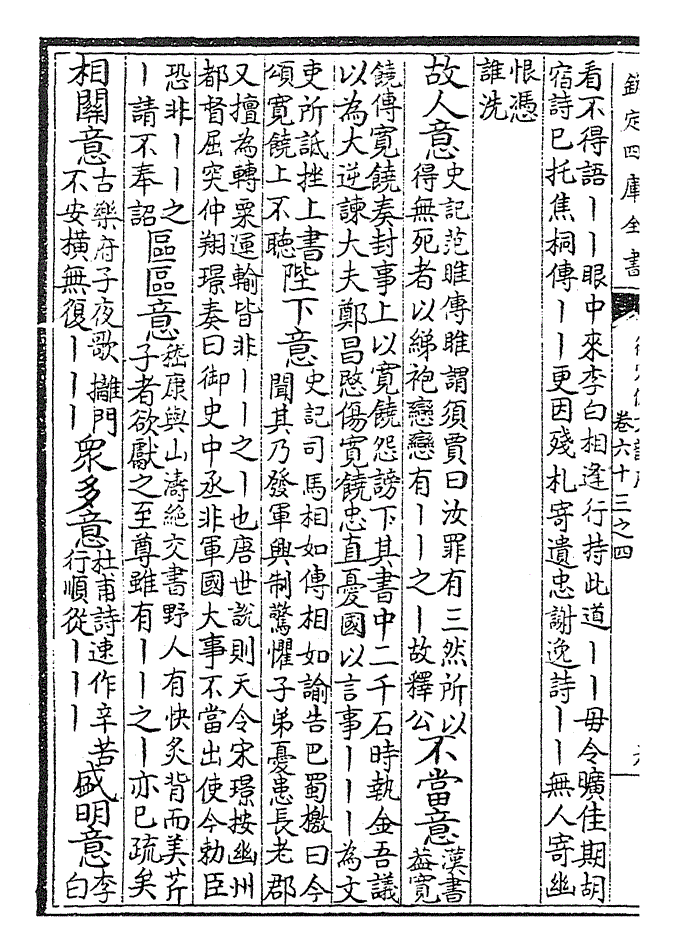 欽定四庫全書
卷六十三之四
看不得語丨丨眼中來李白相逢行持此道丨丨毋令曠佳期胡
宿詩已托焦桐傳丨丨更因殘札寄遺忠謝逸詩丨丨無人寄幽
恨憑
誰洗
故人意
史記范雎傳雎謂須賈曰汝罪有三然所以
得無死者以綈袍戀戀有丨丨之丨故釋公
不當意
漢書
蓋寬
饒傳寬饒奏封事上以寬饒怨謗下其書中二千石時執金吾議
以為大逆諫大夫鄭昌愍傷寬饒忠直憂國以言事丨丨丨為文
吏所詆挫上書
頌寬饒上不聽
陛下意
史記司馬相如傳相如諭告巴蜀檄曰今
聞其乃發軍興制驚懼子弟憂患長老郡
又擅為轉粟運輸皆非丨丨之丨也唐世說則天令宋璟按幽州
都督屈突仲翔璟奏曰御史中丞非軍國大事不當出使今勅臣
恐非丨丨之
丨請不奉詔
區區意
嵇康與山濤絶交書野人有快炙背而美芹
子者欲獻之至尊雖有丨丨之丨亦已疏矣
相關意
古樂府子夜歌攡門
不安橫無復丨丨丨
衆多意
杜甫詩速作辛苦
行順從丨丨丨
盛明意
李
白